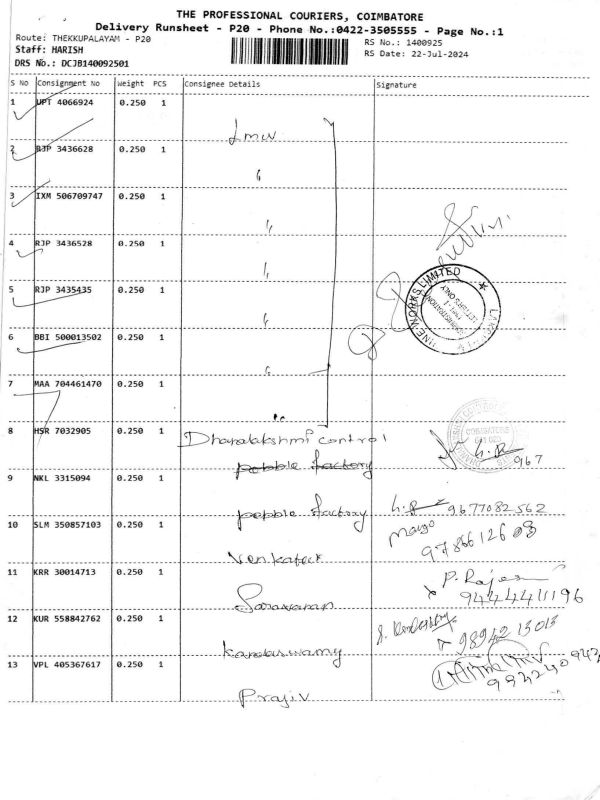 THE PROFESSIONAL COURIERS, COIMBATORE
Delivery Runsheet - P20 - Phone No.:0422-3505555 - Page No.:1
Route: THEKKUPALAYAM - P20
Staff: HARISH
DRS No.: DCJB140092501
RS No.: 1400925
RS Date: 22-Jul-2024
S No Consignment No Weight PCS Consignee Details Signature
1 UPT 4066924 0.250 1
Lmw
2 RJP 3436628 0.250 1
3 IXM 506709747 0.250 1
4 RJP 3436528 0.250 1
5 RJP 3435435 0.250 1
6 BBI 500013502 0.250 1
7 MAA 704461470 0.250 1
8 HSR 7032905 0.250 1
Dhanalakshmi control
pebble factory
967
9 NKL 3315094 0.250 1
pebble factory 9677082562
10 SLM 350857103 0.250 1
Venkatesh 9786612608
11 KRR 30014713 0.250 1
Saravanan P. Rajes 9444441196
12 KUR 558842762 0.250 1
Kandaswamy 9894213013
13 VPL 405367617 0.250 1
Prajiv